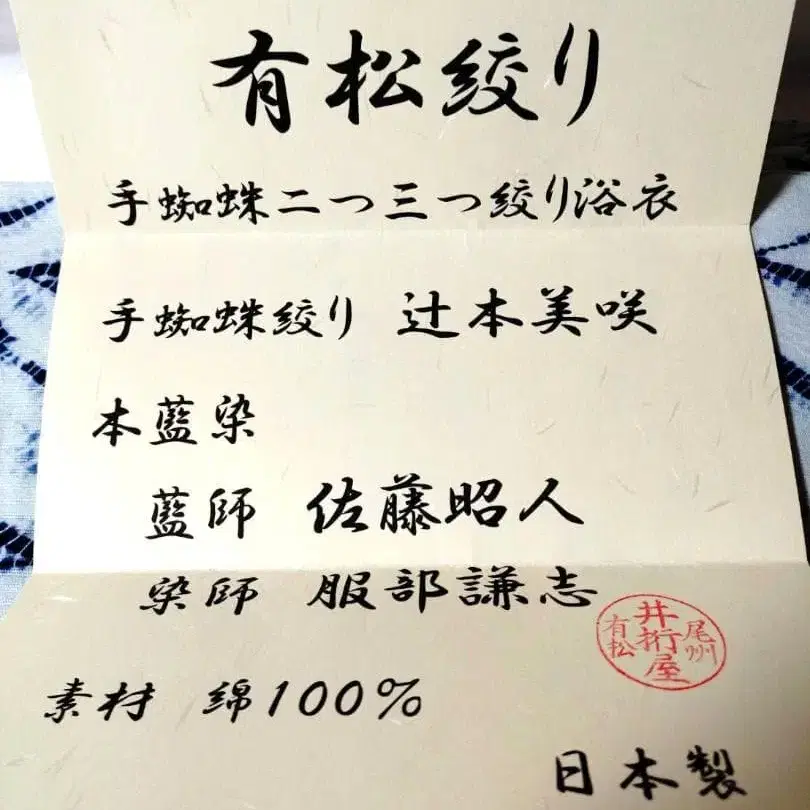 有松絞り
手蜘蛛二つ三つ絞り浴衣
手蜘蛛絞り 辻本美咲
本藍染
藍師 佐藤昭人
染師 服部謙志
尾州
井桁屋
有松
素材 綿100%
日本製